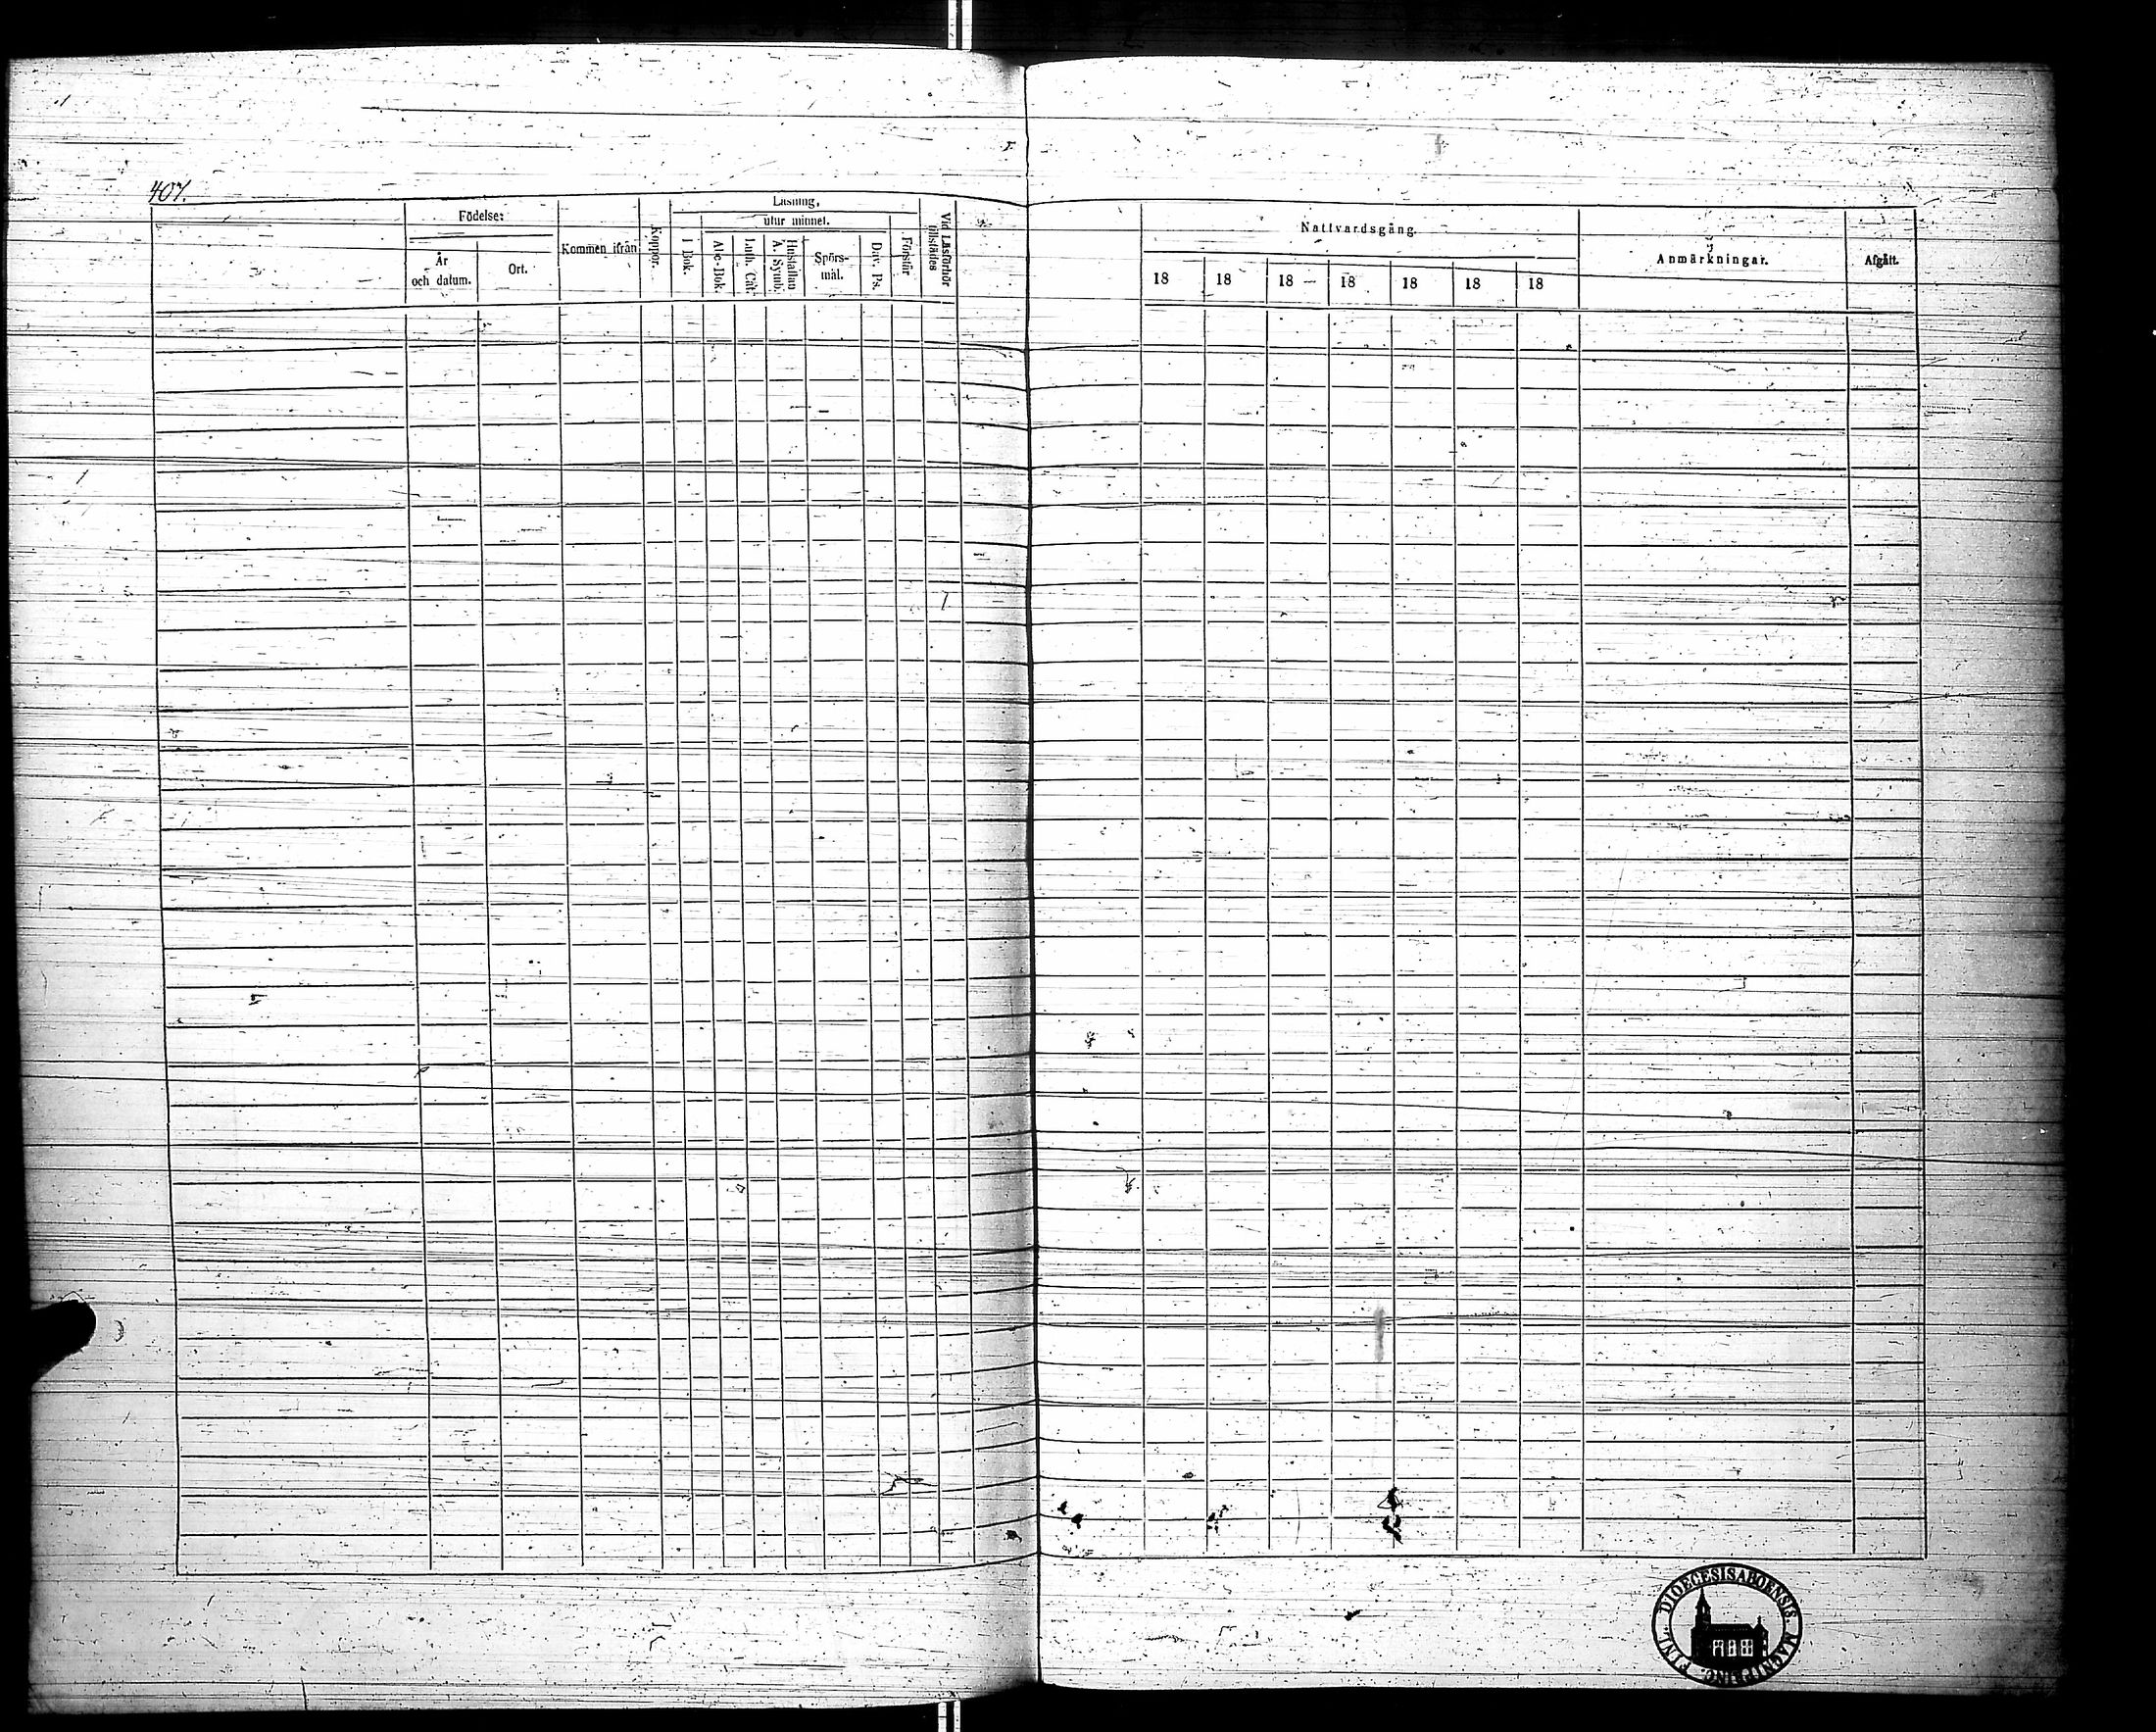 407.
Födelse:
År
och datum.
Ort.
Kommen ifrån
Koppor.
Läsning,
utur minnet.
I Bok.
Abc-Bok.
Luth. Cat.
Hustaflan
A. Symb.
Spörs-
mål.
Dav. Ps.
Förstår
Vid Läsförhör
tillstädes
Nattvardsgång.
18 18 18 18 18 18 18
Anmärkningar.
Afgått.
DIOECESIS ABOENSIS. MAGNI PRINC. FINL.